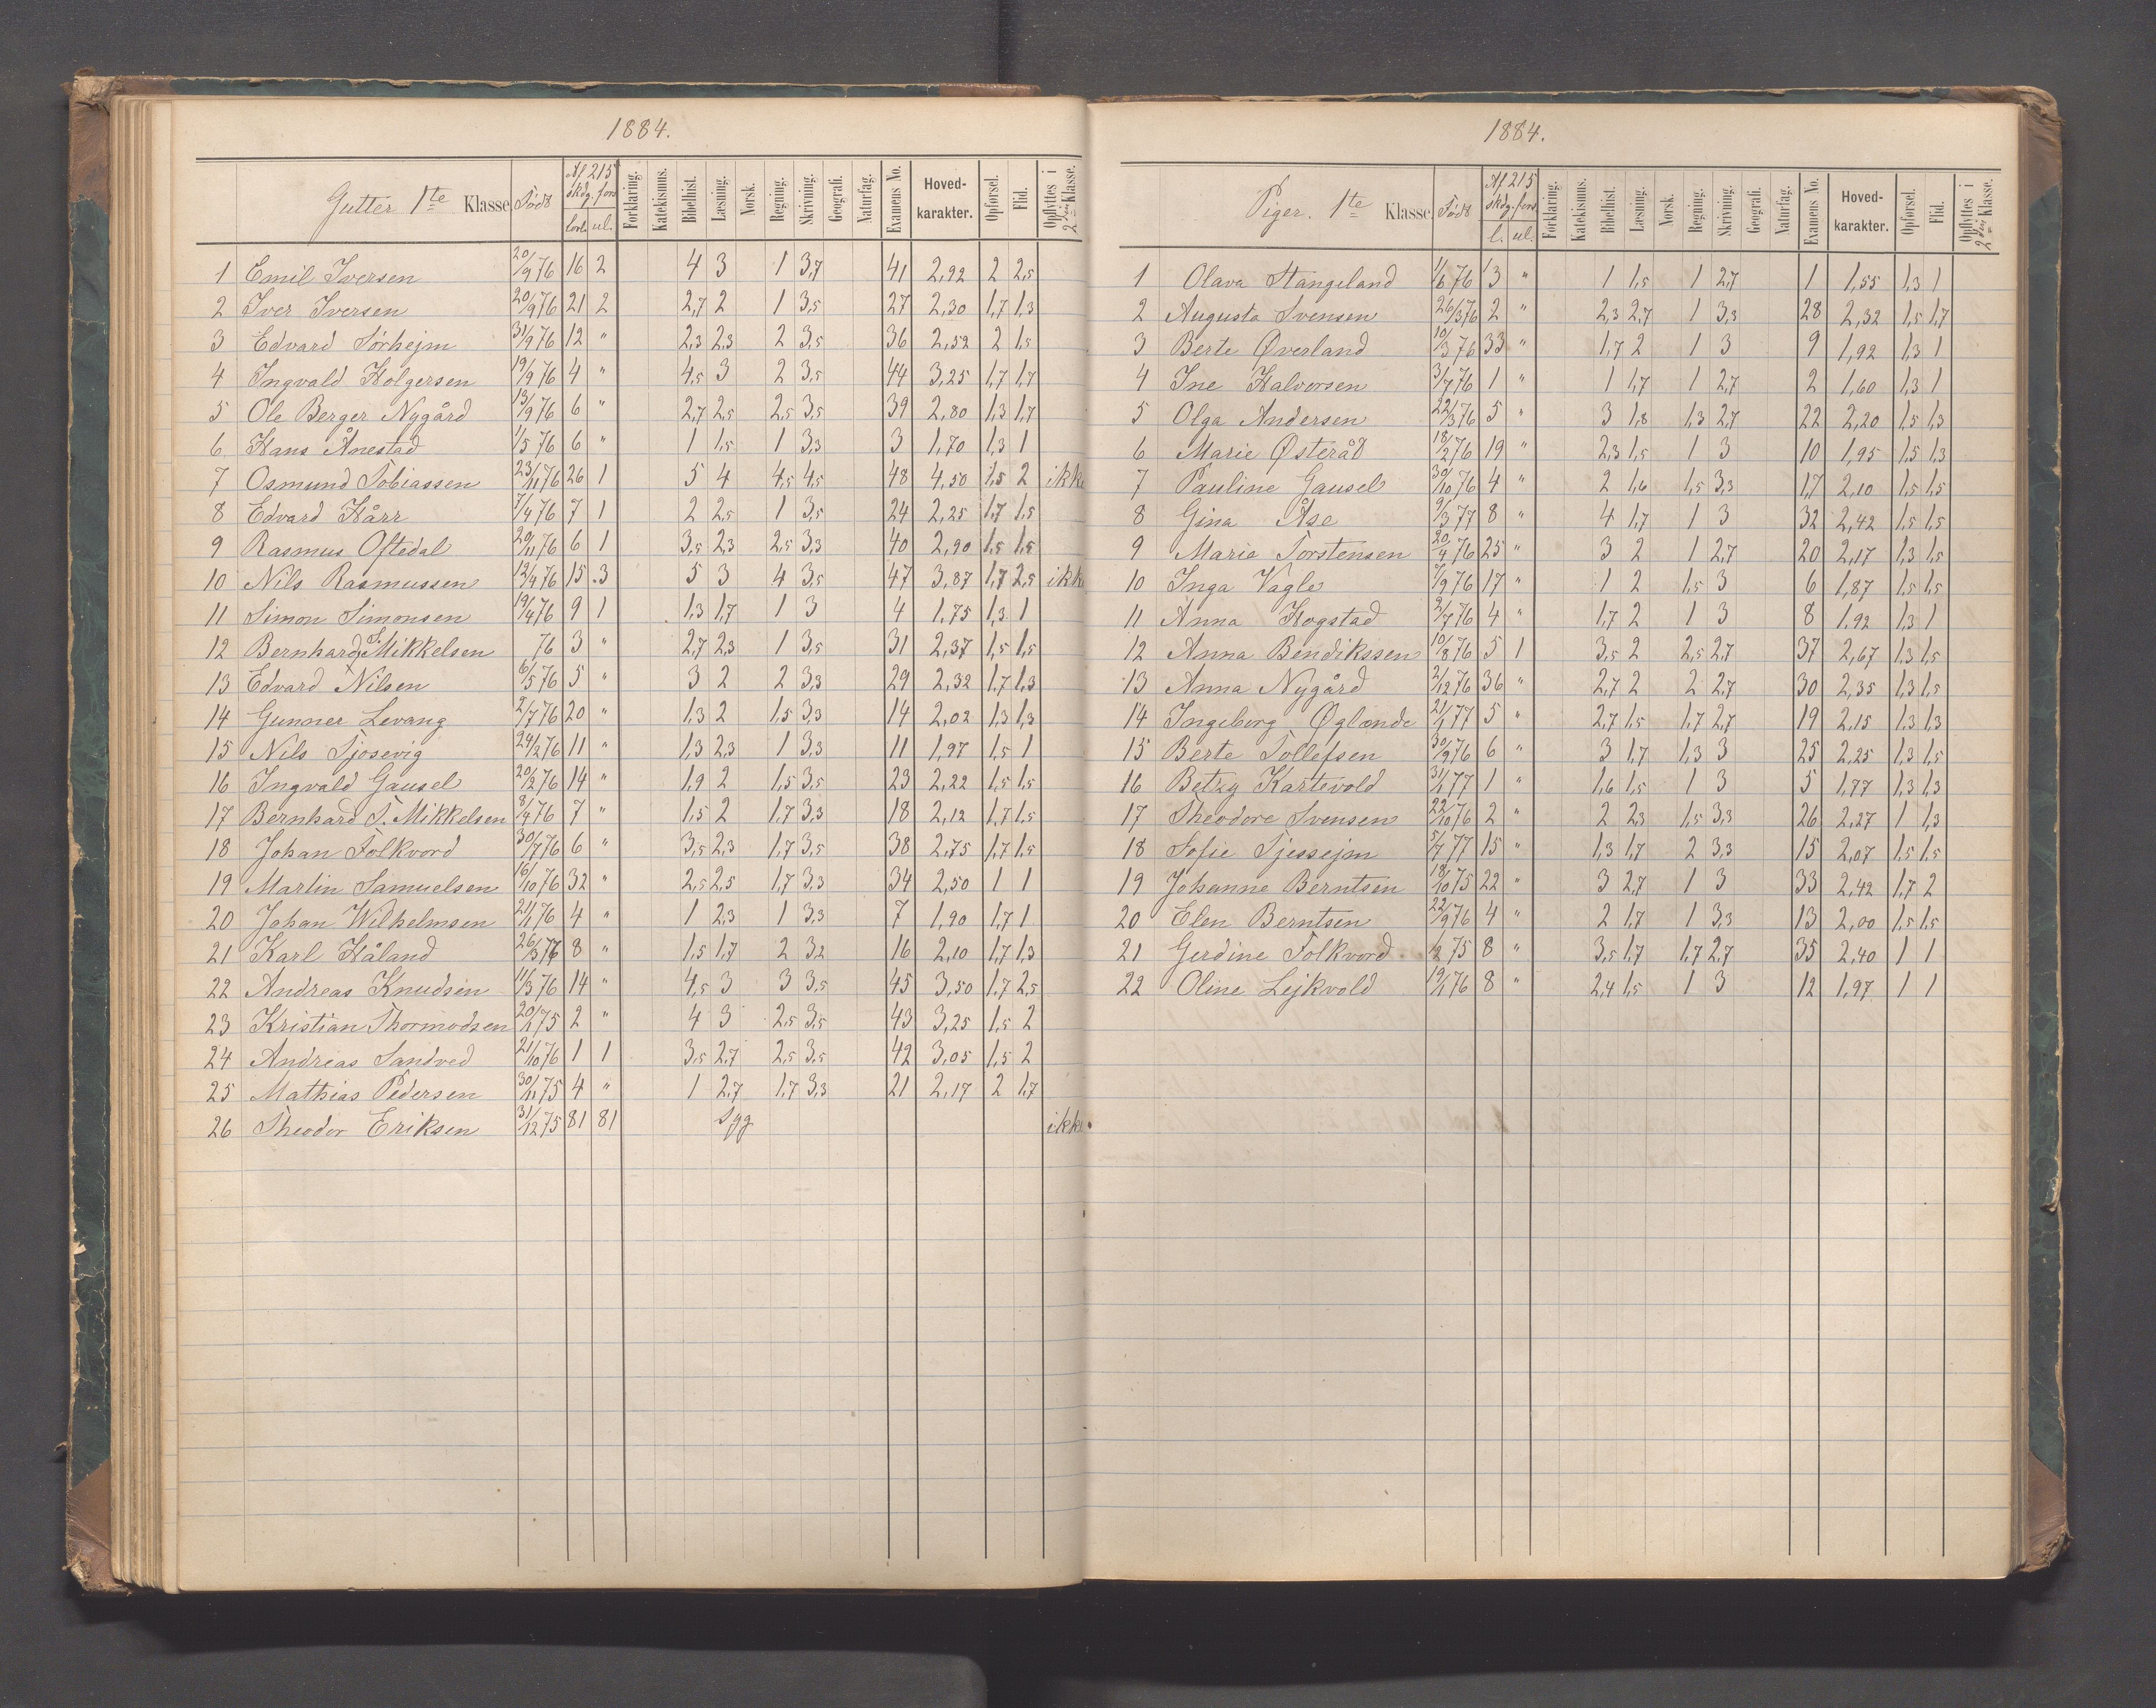 1884.
Gutter 1te Klasse. Født Af 215 skdg. fors. lovl. ul. Forklaring. Katekismus. Bibelhist. Læsning. Norsk. Regning. Skrivning. Geografi. Naturfag. Examens No. Hovedkarakter. Opførsel. Flid. Opflyttes i 2den Klasse.
1 Emil Iversen 20/9 76 16 2 4 3 1 3,7 41 2,92 2 2,5
2 Iver Iversen 20/9 76 21 2 2,7 2 1 3,5 27 2,30 1,7 1,3
3 Edvard Sørhejm 31/9 76 12 " 2,3 2,3 2 3,5 36 2,52 2 1,5
4 Ingvald Holgersen 19/9 76 4 " 4,5 3 2 3,5 44 3,25 1,7 1,7
5 Ole Berger Nygård 13/9 76 6 " 2,7 2,5 2,5 3,5 39 2,80 1,3 1,7
6 Hans Ånestad 1/5 76 6 " 1 1,5 1 3,3 3 1,70 1,3 1
7 Osmund Tobiassen 23/11 76 26 1 5 4 4,5 4,5 48 4,50 1,5 2 ikke
8 Edvard Hårr 7/4 76 7 1 2 2,5 1 3,5 24 2,25 1,7 1,5
9 Rasmus Oftedal 29/11 76 6 1 3,5 2,3 2,5 3,3 40 2,90 1,5 1,5
10 Nils Rasmussen 12/4 76 15 3 5 3 4 3,5 47 3,87 1,7 2,5 ikke
11 Simon Simonsen 19/4 76 9 1 1,3 1,7 1 3 4 1,75 1,3 1
12 Bernhard S. Mikkelsen 76 3 " 2,7 2,3 1 3,5 31 2,37 1,5 1,5
13 Edvard Nilsen 6/5 76 5 " 3 2 2 3,3 29 2,32 1,7 1,3
14 Gunner Levang 2/7 76 20 " 1,3 2 1,5 3,3 14 2,02 1,3 1,3
15 Nils Tjosevig 24/2 76 11 " 1,3 2,3 1 3,3 11 1,97 1,5 1
16 Ingvald Gausel 20/2 76 14 " 1,9 2 1,5 3,5 23 2,22 1,5 1,5
17 Bernhard T. Mikkelsen 8/4 76 7 " 1,5 2 1,7 3,3 18 2,12 1,7 1,5
18 Johan Folkvord 30/7 76 6 " 3,5 2,3 1,7 3,5 38 2,75 1,7 1,5
19 Martin Samuelsen 16/10 76 32 " 2,5 2,5 1,7 3,3 34 2,50 1 1
20 Johan Wilhelmsen 21/11 76 4 " 1 2,3 1 3,3 7 1,90 1,7 1
21 Karl Håland 26/3 77 8 " 1,5 1,7 2 3,2 16 2,10 1,7 1,3
22 Andreas Knudsen 11/3 76 14 " 4,5 3 3 3,5 45 3,50 1,7 2,5
23 Kristian Thormodsen 20/11 75 2 " 4 3 2,5 3,5 43 3,25 1,5 2
24 Andreas Sandved 21/10 76 1 1 3,5 2,7 2,5 3,5 42 3,05 1,5 2
25 Mathias Pedersen 30/11 75 4 " 1 2,7 1,7 3,3 21 2,17 2 1,7
26 Theodor Eriksen 31/12 75 81 81 Syg ikke
1884.
Piger. 1te Klasse. Født Af 215 skdg. fors. l. ul. Forklaring. Katekismus. Bibelhist. Læsning. Norsk. Regning. Skrivning. Geografi. Naturfag. Examens No. Hovedkarakter. Opførsel. Flid. Opflyttes i 2den Klasse.
1 Olava Stangeland 1/6 76 3 " 1 1,5 1 2,7 1 1,55 1,3 1
2 Augusta Svensen 26/3 76 2 " 2,3 2,7 1 3,3 28 2,32 1,5 1,7
3 Berte Øverland 10/3 76 33 " 1,7 2 1 3 9 1,92 1,3 1
4 Ine Halvorsen 3/7 76 1 " 1 1,7 1 2,7 2 1,60 1,3 1
5 Olga Andersen 22/3 76 5 " 3 1,8 1,3 2,7 22 2,20 1,5 1,3
6 Marie Østeråd 18/2 76 19 " 2,3 1,5 1 3 10 1,95 1,5 1,3
7 Pauline Gausel 30/10 76 4 " 2 1,6 1,5 3,3 17 2,10 1,5 1,5
8 Gina Åse 9/3 77 8 " 4 1,7 1 3 32 2,42 1,5 1,5
9 Marie Torstensen 20/4 76 25 " 3 2 1 2,7 20 2,17 1,3 1,5
10 Inga Vagle 7/9 76 17 " 1 2 1,5 3 6 1,87 1,5 1,5
11 Anna Hogstad 2/7 76 4 " 1,7 2 1 3 8 1,92 1,3 1
12 Anna Bendikssen 10/8 76 5 1 3,5 2 2,5 2,7 37 2,67 1,3 1,5
13 Anna Nygård 2/12 76 36 " 2,7 2 2 2,7 30 2,35 1,3 1,5
14 Ingeborg Øglænde 21/1 77 5 " 2,7 1,5 1,7 2,7 19 2,15 1,3 1,3
15 Berte Tollefsen 30/9 76 6 " 3 1,7 1,3 3 25 2,25 1,3 1,5
16 Betzy Kartevold 31/1 77 1 " 1,6 1,5 1 3 5 1,77 1,3 1,3
17 Theodore Svensen 22/10 76 2 " 2 2,3 1,5 3,3 26 2,27 1 1,3
18 Sofie Tjessejm 5/7 77 15 " 1,3 1,7 2 3,3 15 2,07 1,5 1,5
19 Johanne Berntsen 18/10 75 22 " 3 2,7 1 3 33 2,42 1,7 2
20 Elen Berntsen 22/9 76 4 " 2 1,7 1 3,3 13 2,00 1,5 1,5
21 Gerdine Folkvord 1/2 75 8 " 3,5 1,7 1,7 2,7 35 2,40 1 1
22 Oline Lejkvold 19/1 76 8 " 2,4 1,5 1 3 12 1,97 1 1